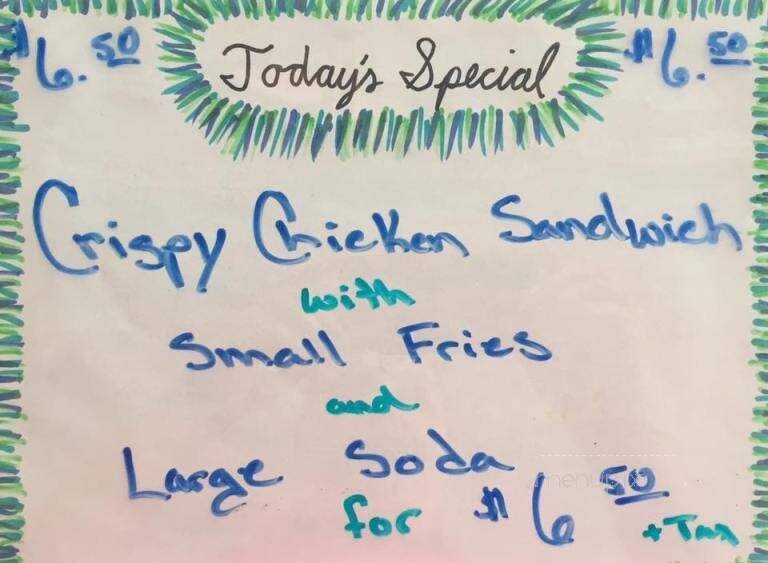 $6.50 Today's Special $6.50
Crispy Chicken Sandwich
with
Small Fries
and
Large Soda
for $6 50
+ Tax